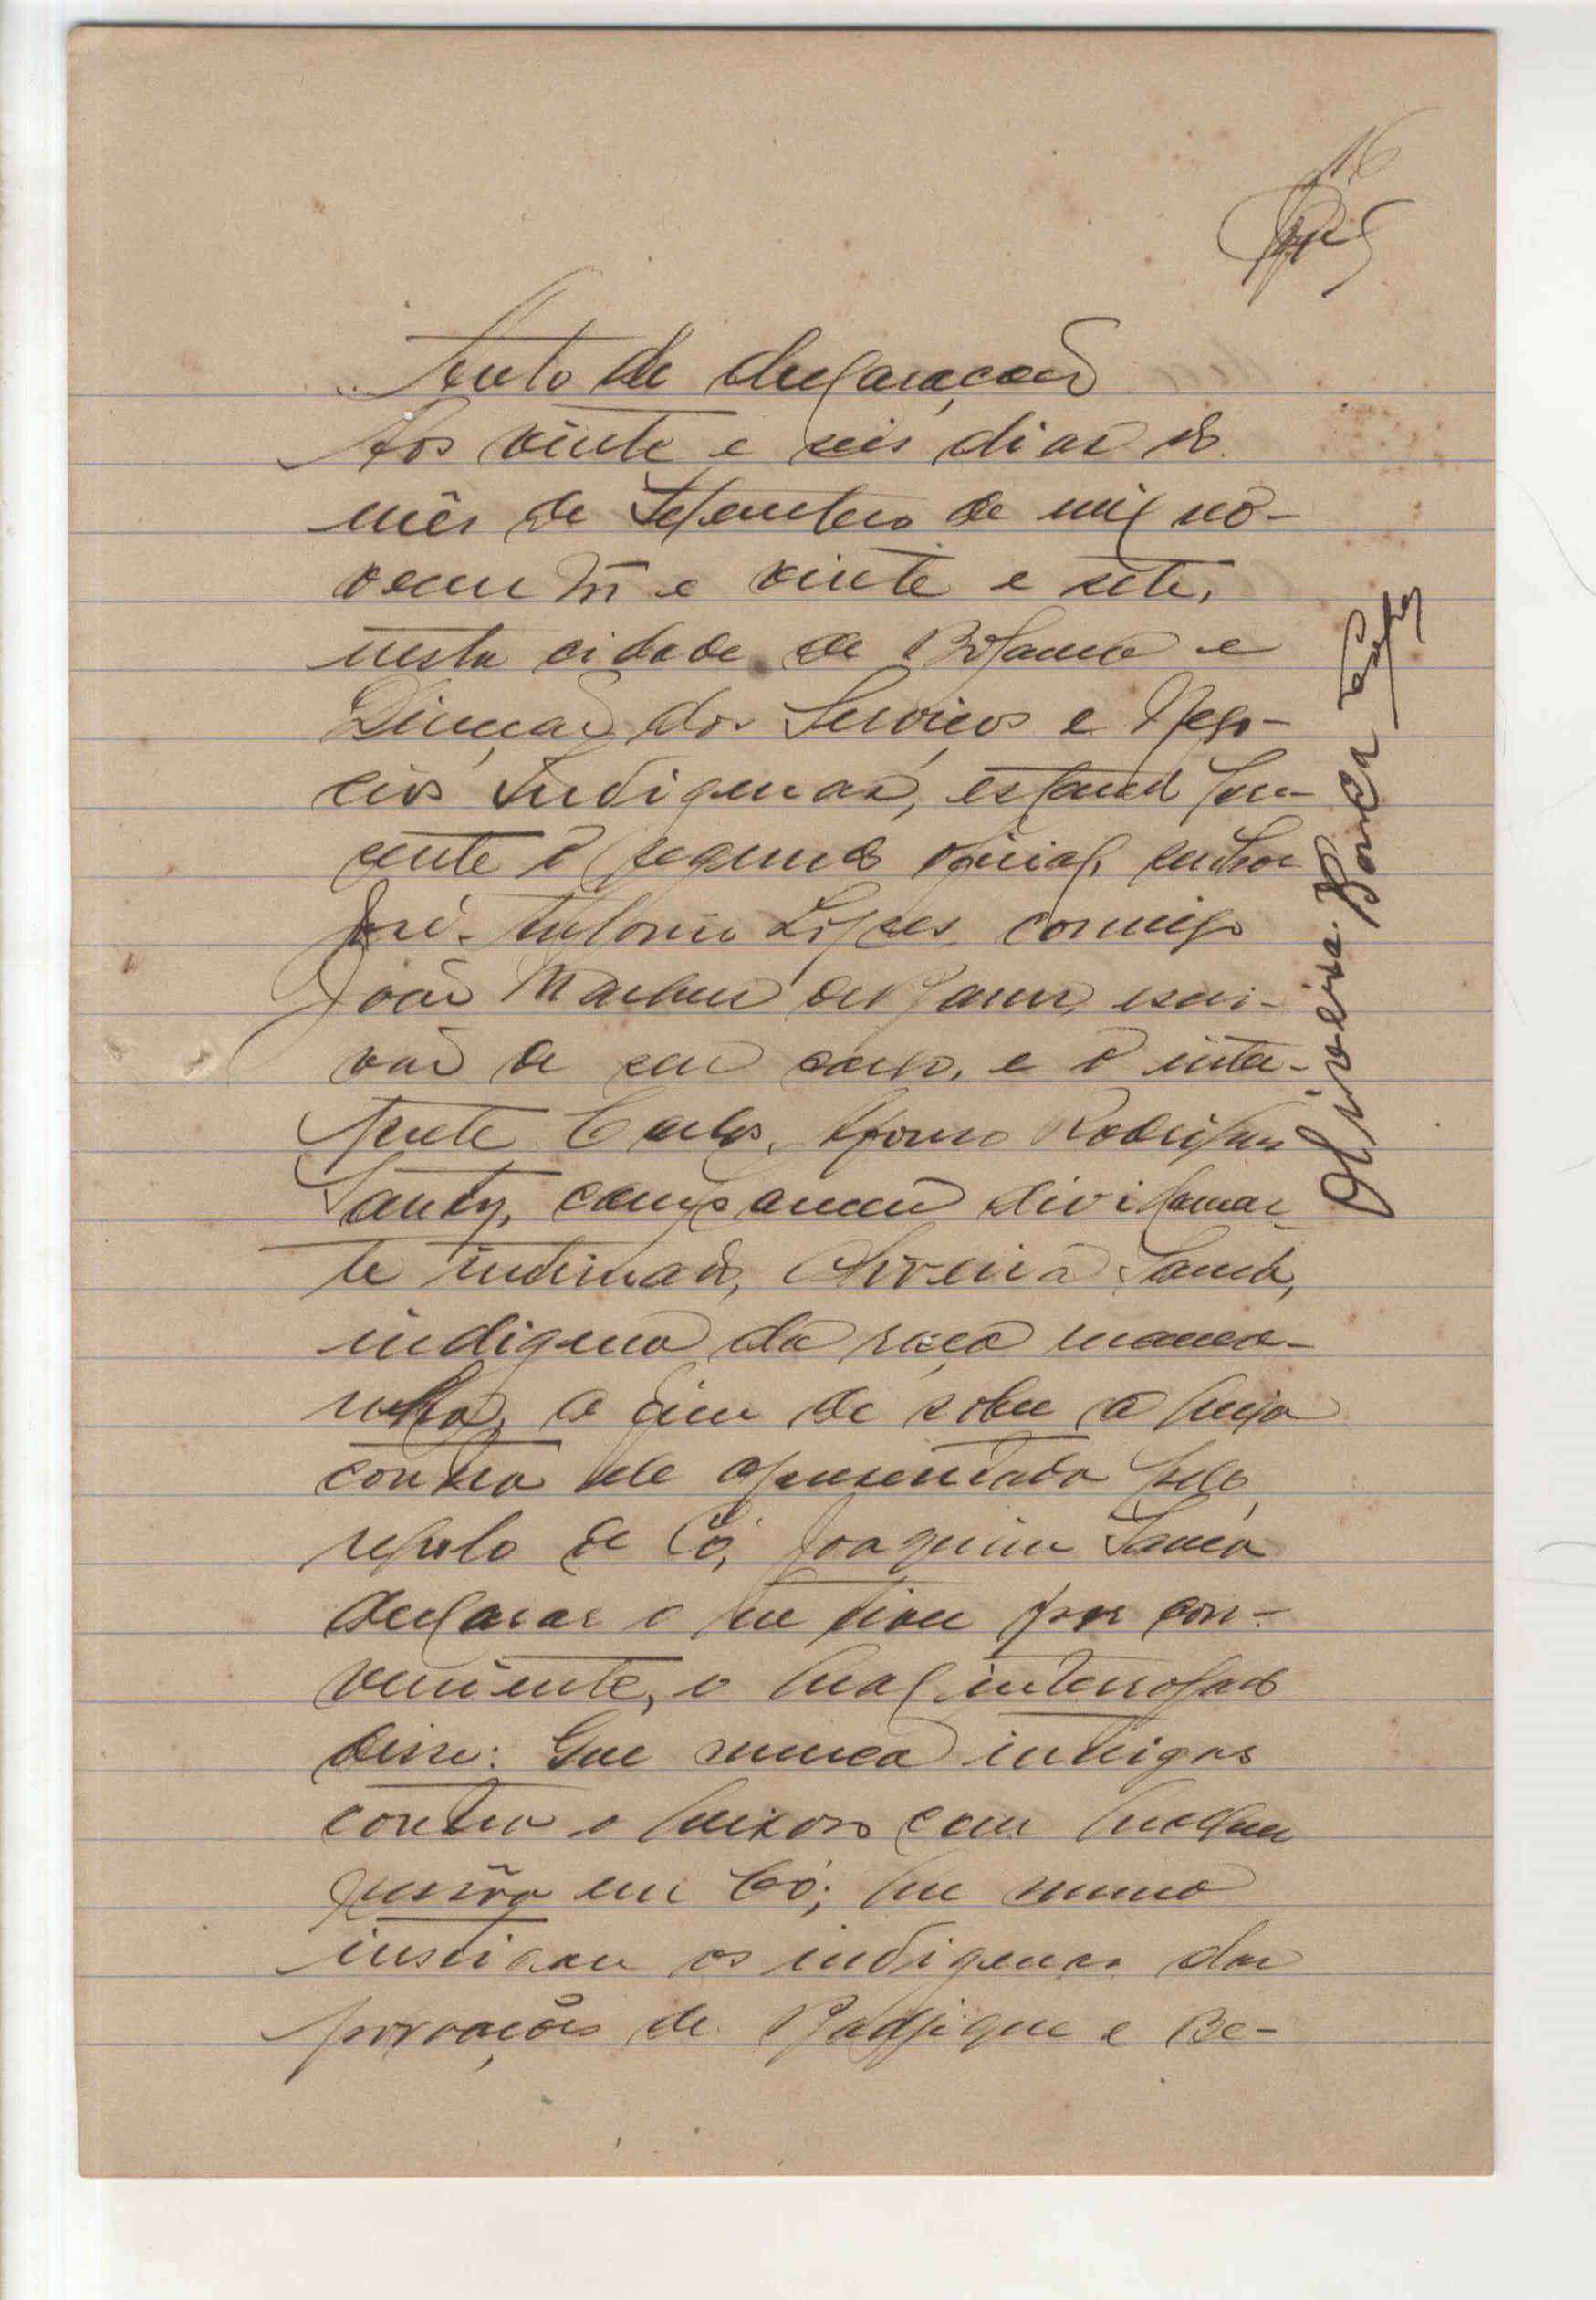 16
Auto de declaração
Aos vinte e seis dias do
mês de Setembro de mil no-
vecentos e vinte e sete,
nesta cidade de Bolama e
Direcção dos Serviços e Nego-
cios Indigenas, estando pre-
sente o segundo oficial, senhor
José Antonio Lopes, comigo
João escri-
vão de seu cargo, e o inter-
prete Carlos Afonso Rodrigues
compareceu dividamen-
te intimado, Oliveira Sanca,
indigena da raça manca-
nha, a fim de sobre a queixa
contra ele apresentada pelo
regulo de Có, Joaquim Sanca
declarar o que tiver por con-
veniente, o qual interrogado
disse: Que nunca intrigas
contra o queixoso com qualquer
pessôa em Có; que nunca
instigou os indigenas das
povoações de Padjique e Be-
Oliveira Sanca